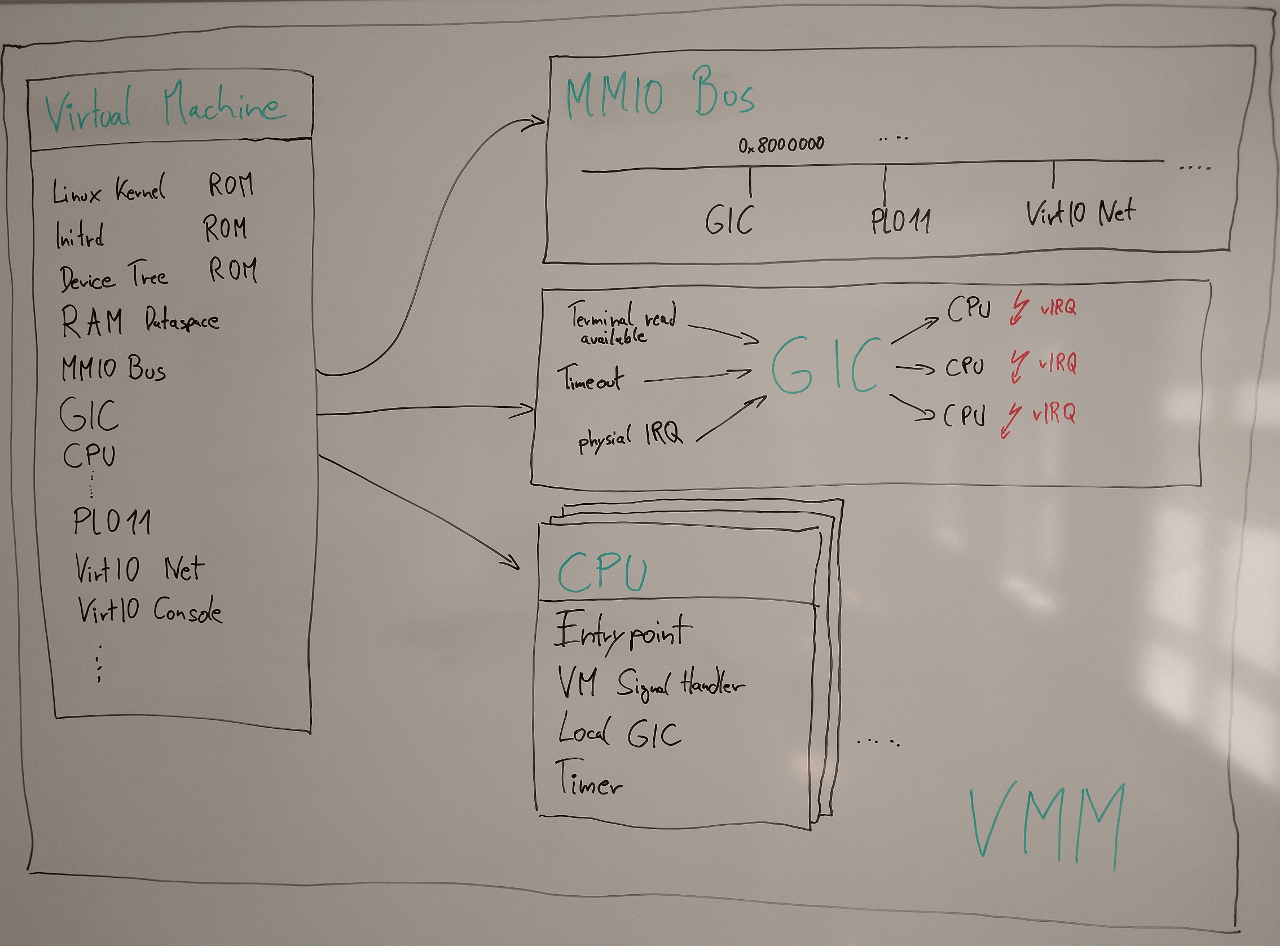 Virtual Machine
Linux Kernel ROM
Initrd ROM
Device Tree ROM
RAM Dataspace
MMIO Bus
GIC
CPU
PL011
VirtIO Net
VirtIO Console
MMIO Bus
0x8000000 ....
....
GIC PL011 VirtIO Net
Terminal read
available
Timeout
physial IRQ
GIC
CPU vIRQ
CPU vIRQ
CPU vIRQ
CPU
Entrypoint
VM Signal Handler
Local GIC
Timer
....
VMM